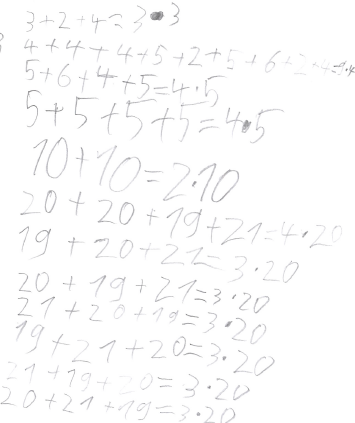 3+2+4=3•3
4+4+4+5+2+5+6+2+4=9·4
5+6+4+5=4·5
5+5+5+5=4•5
10+10=2·10
20+20+19+21=4·20
19+20+21=3·20
20+19+21=3·20
21+20+19=3·20
19+21+20=3·20
21+19+20=3·20
20+21+19=3·20